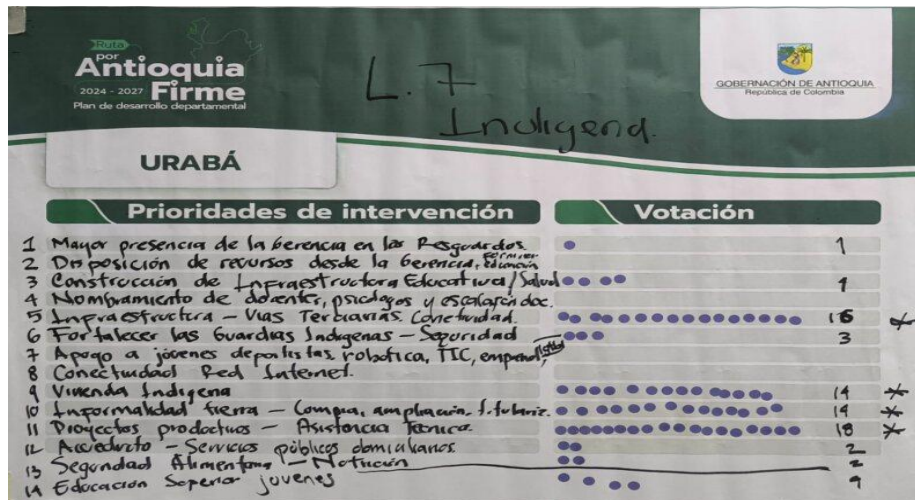 Ruta
por
Antioquia
2024 - 2027 Firme
Plan de desarrollo departamental
L. 7
Indigena.
GOBERNACIÓN DE ANTIOQUIA
República de Colombia
URABÁ
Prioridades de intervención Votación
1 Mayor presencia de la Gerencia en los Resguardos. 1
2 Disposición de recursos desde la Gerencia, educación
3 Construcción de Infraestructura Educativa/Salud 4
4 Nombramiento de docentes, psicólogos y escalafón doc.
5 Infraestructura - Vias Terciarias. Conetividad. 16 *
6 Fortalecer las Guardias Indigenas - Seguridad 3
7 Apoyo a jóvenes deportistas, robotica, TIC,
8 Conectividad Red Internet.
9 Vivienda Indigena 14 *
10 Informalidad tierra - Compra, ampliación. 14 *
11 Proyectos productivos - Asistencia Tecnica. 18 *
12 Acueducto - Servicios públicos domiciliarios 2
13 Seguridad Alimentaria - Nutrición 2
14 Educación Superior jovenes 4